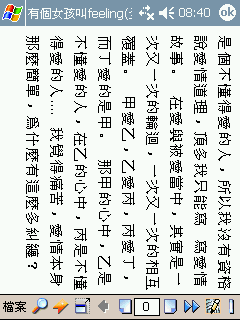 有個女孩叫feeling(
08:40
ok
是個不懂得愛的人，所以我沒有資格
說愛情道理，頂多我只能寫 寫愛情
故事。 在愛與被愛當中，其實是一
次又一次的輪迴，一次又一次的相互
覆蓋。 甲愛乙，乙愛丙，丙愛丁，
而丁愛的是甲。 那甲的心中，乙是
不懂愛的人，在乙的心中，丙是不懂
得愛的人.... 我覺得痛苦，愛情本身
那麼簡單，爲什麼有這麼多糾纏？
檔案
0